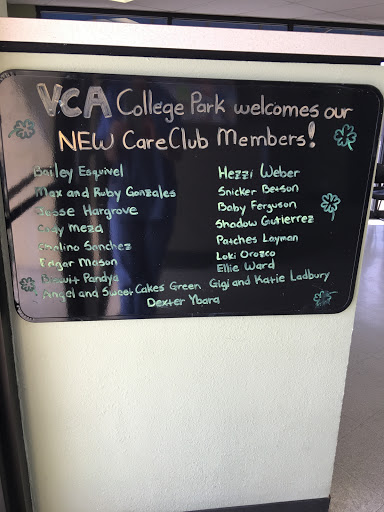 VCA College Park welcomes our
NEW CareClub Members!
Bailey Esquivel
Max and Ruby Gonzales
Hargrove
Meza
Sanchez
Mason
Biscuit Pandya
Angel and Sweet Cakes Green
Hezzi Weber
Snicker Betson
Baby Ferguson
Shadow Gutierrez
Patches Layman
Loki Orozco
Ellie Ward
Gigi and Katie Ladbury
Dexter Ybara